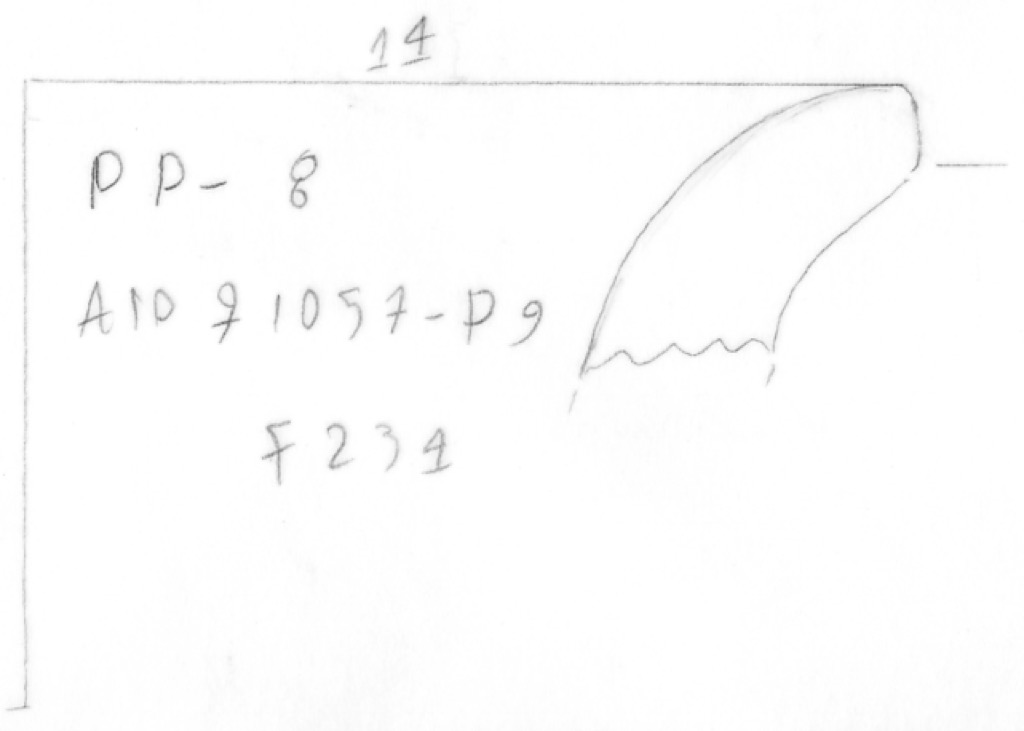 14
PP- 8
A10 91057-P9
F231